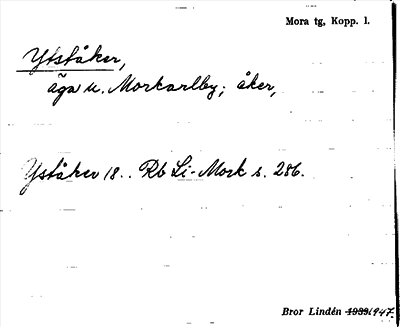 Mora tg, Kopp. l.
Ytståker,
äga u. Morkarlby; åker,
Yståker 18.. Rb Li-Mork s. 286.
Bror Lindén 1939 1947.